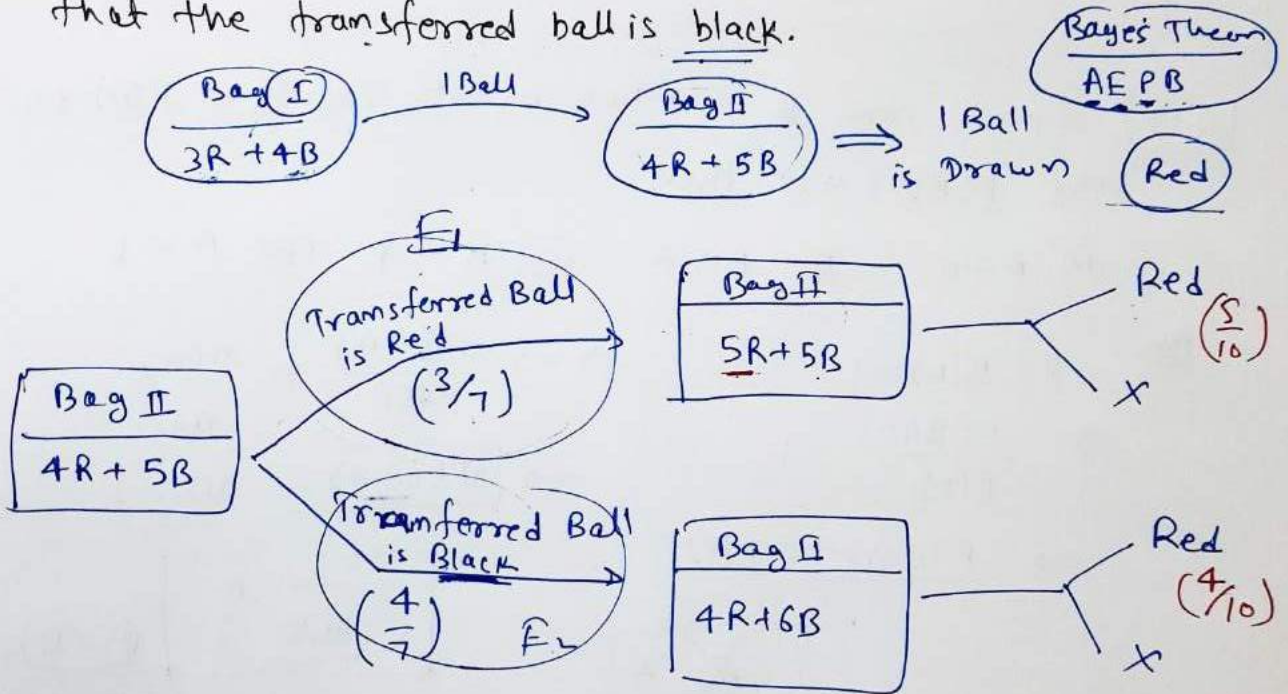 that the transferred ball is black.
Baye's Theorm
AE PB
Bag I
3R + 4B
1 Ball
Bag II
4R + 5B
⇒ 1 Ball
is Drawn
Red
E1
Transferred Ball
is Red
(3/7)
Bag II
5R + 5B
Red
(5/10)
X
Bag II
4R + 5B
Tranferred Ball
is Black
(4/7) E2
Bag II
4R+6B
Red
(4/10)
X